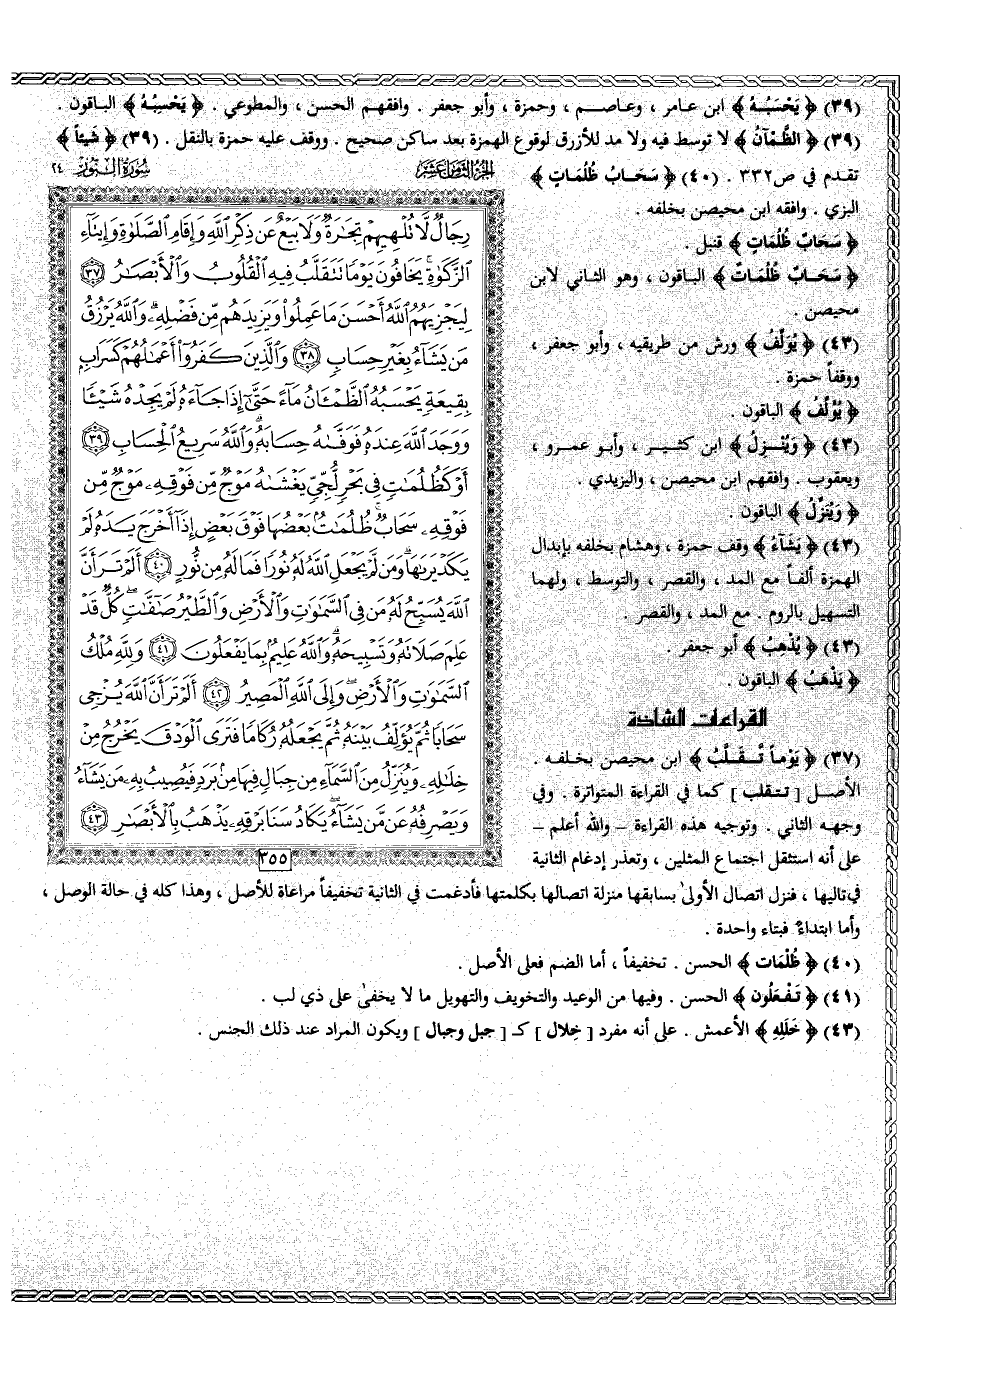 (٣٩) ﴿ يَحْسَبُـهُ ﴾ ابن عامر ، وعاصـم ، وحمزة ، وأبو جعفر . وافقهم الحسن ، والمطوعي . ﴿ يَحْسِبُـهُ ﴾ الباقون .
(٣٩) ﴿ الظَّمْآنُ ﴾ لا توسط فيه ولا مد للأزرق لوقوع الهمزة بعد ساكن صحيح . ووقف عليه حمزة بالنقل . (٣٩) ﴿ شَيْئاً ﴾
تقدم في ص٣٣٢ . (٤٠) ﴿ سَحَابُ ظُلُمَاتٍ ﴾
البزي . وافقه ابن محيصن بخلفه .
﴿ سَحَابٌ ظُلُمَاتٍ ﴾ قنبل .
﴿ سَحَابٌ ظُلُمَاتٌ ﴾ الباقون ، وهو الثاني لابن
محيصن .
(٤٣) ﴿ يُوَلِّفُ ﴾ ورش من طريقيه ، وأبو جعفر ،
ووقفاً حمزة .
﴿ يُؤَلِّفُ ﴾ الباقون .
(٤٣) ﴿ وَيُنْـزِلُ ﴾ ابن كثير ، وأبو عمرو ،
ويعقوب . وافقهم ابن محيصن ، واليزيدي .
﴿ وَيُنَزِّلُ ﴾ الباقون .
(٤٣) ﴿ يَشَآءُ ﴾ وقف حمزة ، وهشام بخلفه بإبدال
الهمزة ألفاً مع المد ، والقصر ، والتوسط ، ولهما
التسهيل بالروم . مع المد ، والقصر .
(٤٣) ﴿ يُذْهِبُ ﴾ أبو جعفر .
﴿ يَذْهَبُ ﴾ الباقون .
القراءات الشاذة
(٣٧) ﴿ يَوْماً تَّـقَـلَّبُ ﴾ ابن محيصن بخلفـه .
الأصـل [ تـتقلب ] كما في القراءة المتواترة . وفي
وجهـه الثاني . وتوجيه هذه القراءة – والله أعلم –
على أنه استثقل اجتماع المثلين ، وتعذر إدغام الثانية
في تاليها ، فنزل اتصال الأولىٰ بسابقها منزلة اتصالها بكلمتها فأدغمت في الثانية تخفيفاً مراعاة للأصل ، وهذا كله في حالة الوصل ،
وأما ابتداءً فبتاء واحدة .
(٤٠) ﴿ ظُلْمَات ﴾ الحسن . تخفيفاً ، أما الضم فعلى الأصل .
(٤١) ﴿ تَـفْعَلُون ﴾ الحسن . وفيها من الوعيد والتخويف والتهويل ما لا يخفىٰ على ذي لب .
(٤٣) ﴿ خَلَلِهِ ﴾ الأعمش . على أنه مفرد [ خِلال ] كـ [ جبل وجبال ] ويكون المراد عند ذلك الجنس .
الجزء الثامن عشر سورة النور ٢٤
رِجَالٌ لَّا تُلْهِيهِمْ تِجَٰرَةٌ وَلَا بَيْعٌ عَن ذِكْرِ ٱللَّهِ وَإِقَامِ ٱلصَّلَوٰةِ وَإِيتَآءِ
ٱلزَّكَوٰةِ يَخَافُونَ يَوْمًا تَتَقَلَّبُ فِيهِ ٱلْقُلُوبُ وَٱلْأَبْصَٰرُ ٣٧
لِيَجْزِيَهُمُ ٱللَّهُ أَحْسَنَ مَا عَمِلُوا۟ وَيَزِيدَهُم مِّن فَضْلِهِۦ وَٱللَّهُ يَرْزُقُ
مَن يَشَآءُ بِغَيْرِ حِسَابٍ ٣٨ وَٱلَّذِينَ كَفَرُوٓا۟ أَعْمَٰلُهُمْ كَسَرَابٍۭ
بِقِيعَةٍ يَحْسَبُهُ ٱلظَّمْـَٔانُ مَآءً حَتَّىٰٓ إِذَا جَآءَهُۥ لَمْ يَجِدْهُ شَيْـًٔا
وَوَجَدَ ٱللَّهَ عِندَهُۥ فَوَفَّىٰهُ حِسَابَهُۥ وَٱللَّهُ سَرِيعُ ٱلْحِسَابِ ٣٩
أَوْ كَظُلُمَٰتٍ فِى بَحْرٍ لُّجِّىٍّ يَغْشَىٰهُ مَوْجٌ مِّن فَوْقِهِۦ مَوْجٌ مِّن
فَوْقِهِۦ سَحَابٌ ظُلُمَٰتٌۢ بَعْضُهَا فَوْقَ بَعْضٍ إِذَآ أَخْرَجَ يَدَهُۥ لَمْ
يَكَدْ يَرَىٰهَا وَمَن لَّمْ يَجْعَلِ ٱللَّهُ لَهُۥ نُورًا فَمَا لَهُۥ مِن نُّورٍ ٤٠ أَلَمْ تَرَ أَنَّ
ٱللَّهَ يُسَبِّحُ لَهُۥ مَن فِى ٱلسَّمَٰوَٰتِ وَٱلْأَرْضِ وَٱلطَّيْرُ صَٰٓفَّٰتٍ كُلٌّ قَدْ
عَلِمَ صَلَاتَهُۥ وَتَسْبِيحَهُۥ وَٱللَّهُ عَلِيمٌۢ بِمَا يَفْعَلُونَ ٤١ وَلِلَّهِ مُلْكُ
ٱلسَّمَٰوَٰتِ وَٱلْأَرْضِ وَإِلَى ٱللَّهِ ٱلْمَصِيرُ ٤٢ أَلَمْ تَرَ أَنَّ ٱللَّهَ يُزْجِى
سَحَابًا ثُمَّ يُؤَلِّفُ بَيْنَهُۥ ثُمَّ يَجْعَلُهُۥ رُكَامًا فَتَرَى ٱلْوَدْقَ يَخْرُجُ مِنْ
خِلَٰلِهِۦ وَيُنَزِّلُ مِنَ ٱلسَّمَآءِ مِن جِبَالٍ فِيهَا مِنۢ بَرَدٍ فَيُصِيبُ بِهِۦ مَن يَشَآءُ
وَيَصْرِفُهُۥ عَن مَّن يَشَآءُ يَكَادُ سَنَا بَرْقِهِۦ يَذْهَبُ بِٱلْأَبْصَٰرِ ٤٣
٣٥٥